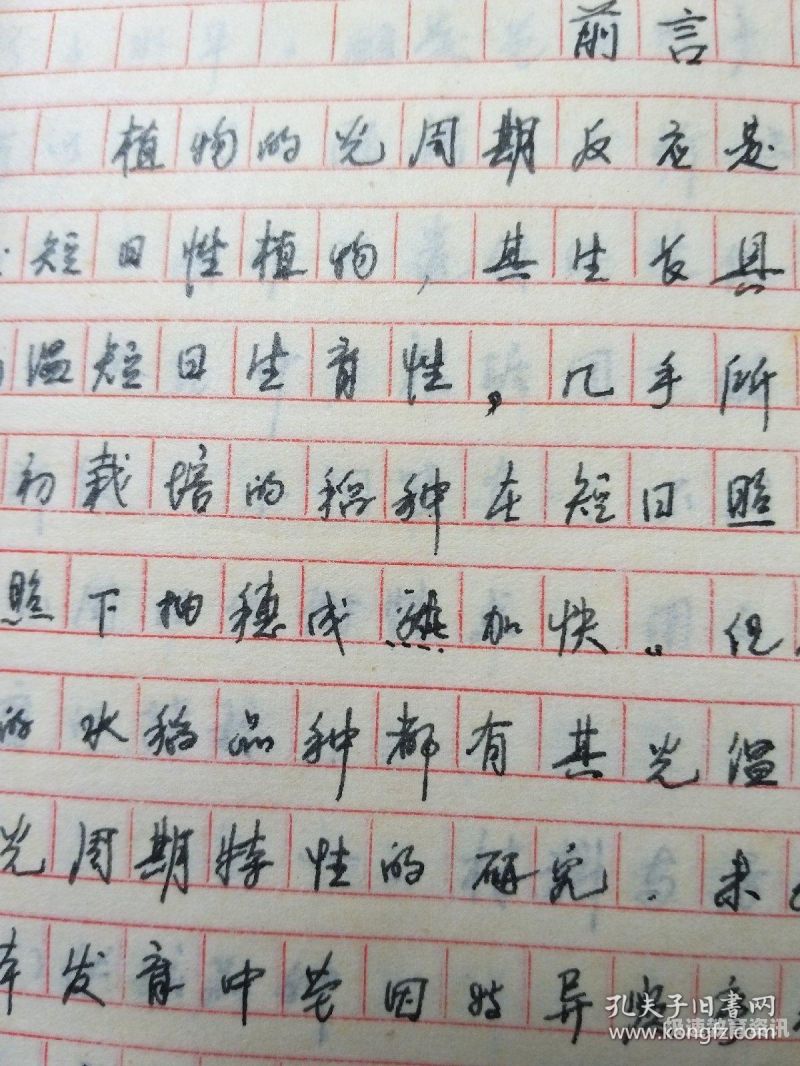 前言
植物的光周期反应是
短日性植物,其生长具
温短日生育性。几乎所
初栽培的稻种在短日照
照下抽穗成熟加快。但
的水稻品种都有其光温
光周期特性的研究.未
发育中花因特异
孔夫子旧书网
极速教育资讯
www.kongfz.com